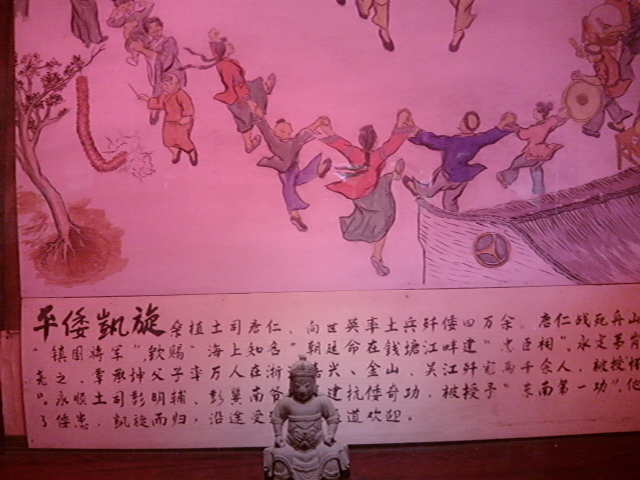 平倭凯旋 桑植土司唐仁、向世英率土兵歼倭四万余。唐仁战死舟山
"镇国将军"，钦赐"海上知名"朝廷命在钱塘江畔建"忠臣相"。永定茅岗
尧之、覃承坤父子率万人在浙 嘉兴、金山、吴江歼 千余人，被授
"。永顺土司彭明辅、彭翼南 建抗倭奇功，被授予"东南第一功"。
了倭患，凯旋而归，沿途受 道欢迎。